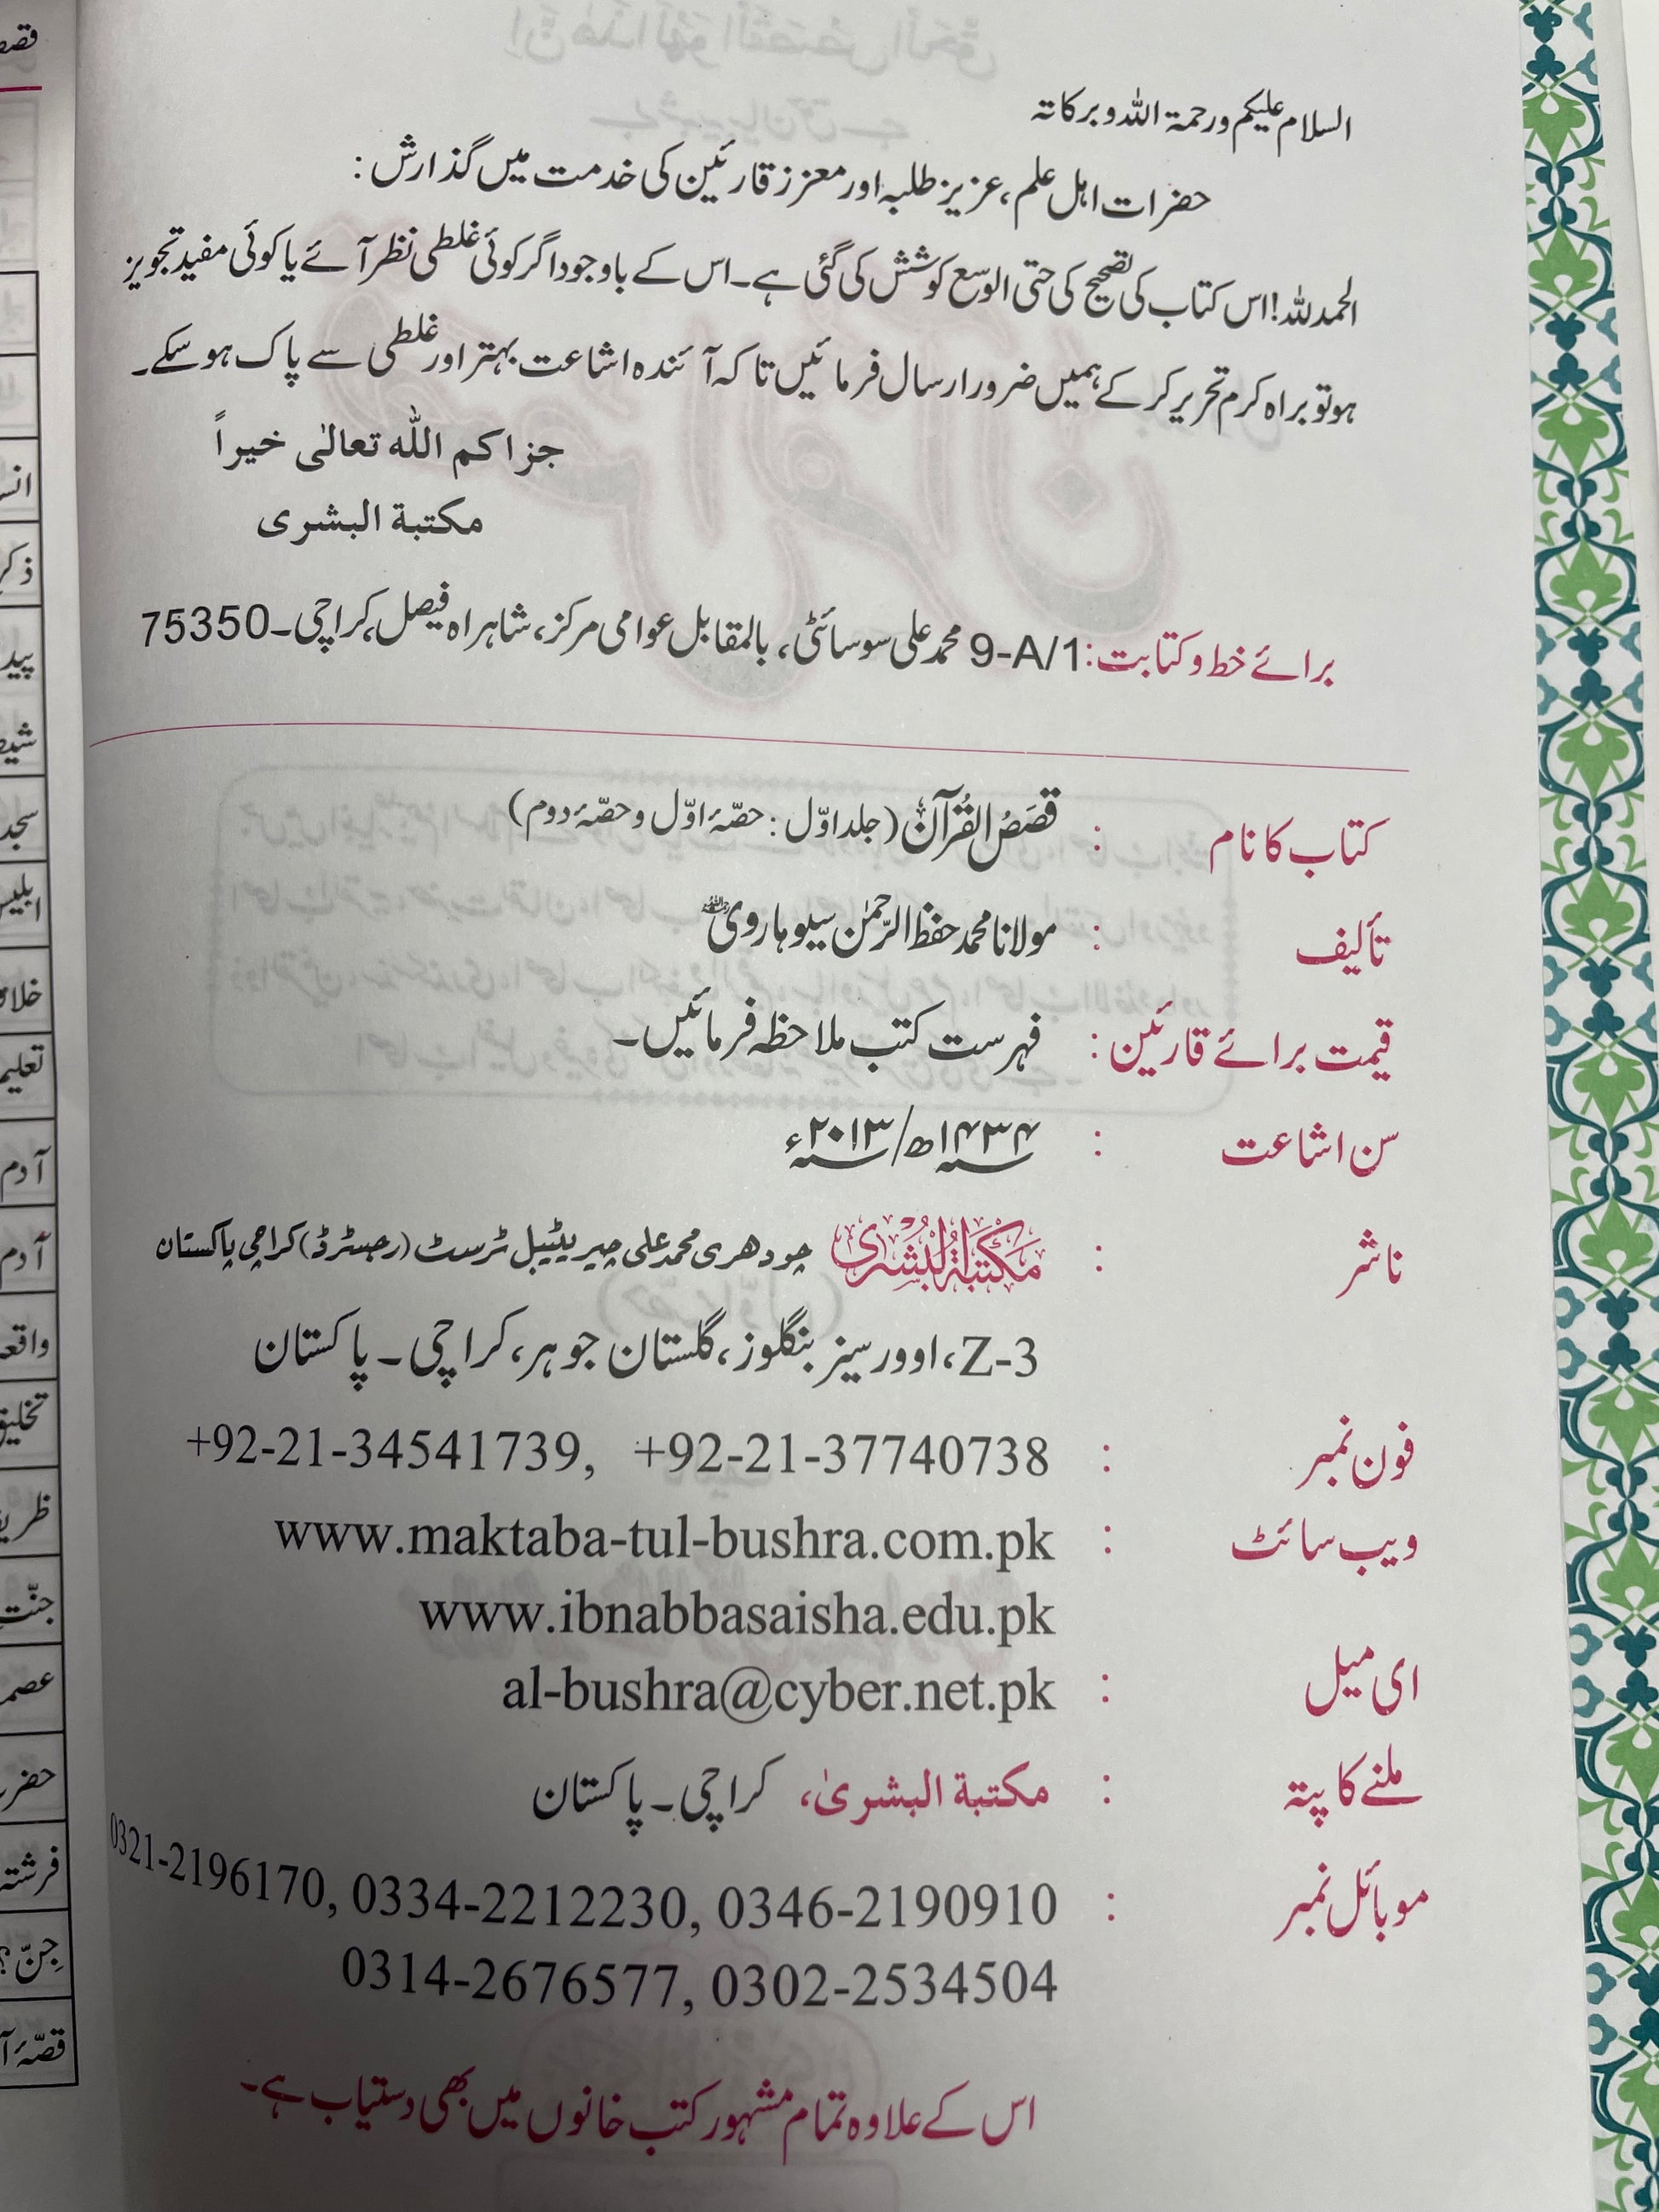 السلام علیکم ورحمۃ اللہ وبرکاتہ
حضرات اہل علم، عزیز طلبہ اور معزز قارئین کی خدمت میں گذارش:
الحمد للہ! اس کتاب کی تصحیح کی حتی الوسع کوشش کی گئی ہے۔ اس کے باوجود اگر کوئی غلطی نظر آئے یا کوئی مفید تجویز
ہو تو براہ کرم تحریر کر کے ہمیں ضرور ارسال فرمائیں تاکہ آئندہ اشاعت بہتر اور غلطی سے پاک ہو سکے۔
جزاکم اللہ تعالیٰ خیراً
مکتبة البشری
برائے خط و کتابت: 9-A/1 محمد علی سوسائٹی، بالمقابل عوامی مرکز، شاہراہ فیصل، کراچی۔ 75350
کتاب کا نام : قَصَصُ القُرآن (جلد اوّل: حصّۂ اوّل و حصّۂ دوم)
تألیف : مولانا محمد حفظ الرّحمٰن سیوہاروی
قیمت برائے قارئین : فہرست کتب ملاحظہ فرمائیں۔
سن اشاعت : ۱۴۳۴ھ/ ۲۰۱۳ء
ناشر : مَكتَبَةُ البُشرى چودھری محمد علی چیریٹیبل ٹرسٹ (رجسٹرڈ) کراچی پاکستان
Z-3، اوورسیز بنگلوز، گلستان جوہر، کراچی۔ پاکستان
فون نمبر : +92-21-34541739, +92-21-37740738
ویب سائٹ : www.maktaba-tul-bushra.com.pk
www.ibnabbasaisha.edu.pk
ای میل : al-bushra@cyber.net.pk
ملنے کا پتہ : مکتبة البشریٰ، کراچی۔ پاکستان
موبائل نمبر : 0321-2196170, 0334-2212230, 0346-2190910
0314-2676577, 0302-2534504
اس کے علاوہ تمام مشہور کتب خانوں میں بھی دستیاب ہے۔